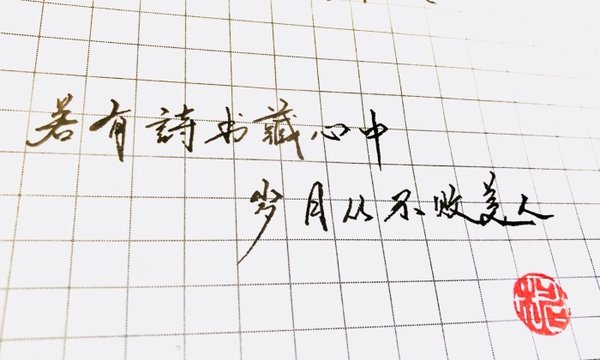 若有詩书藏心中
岁月从不败美人